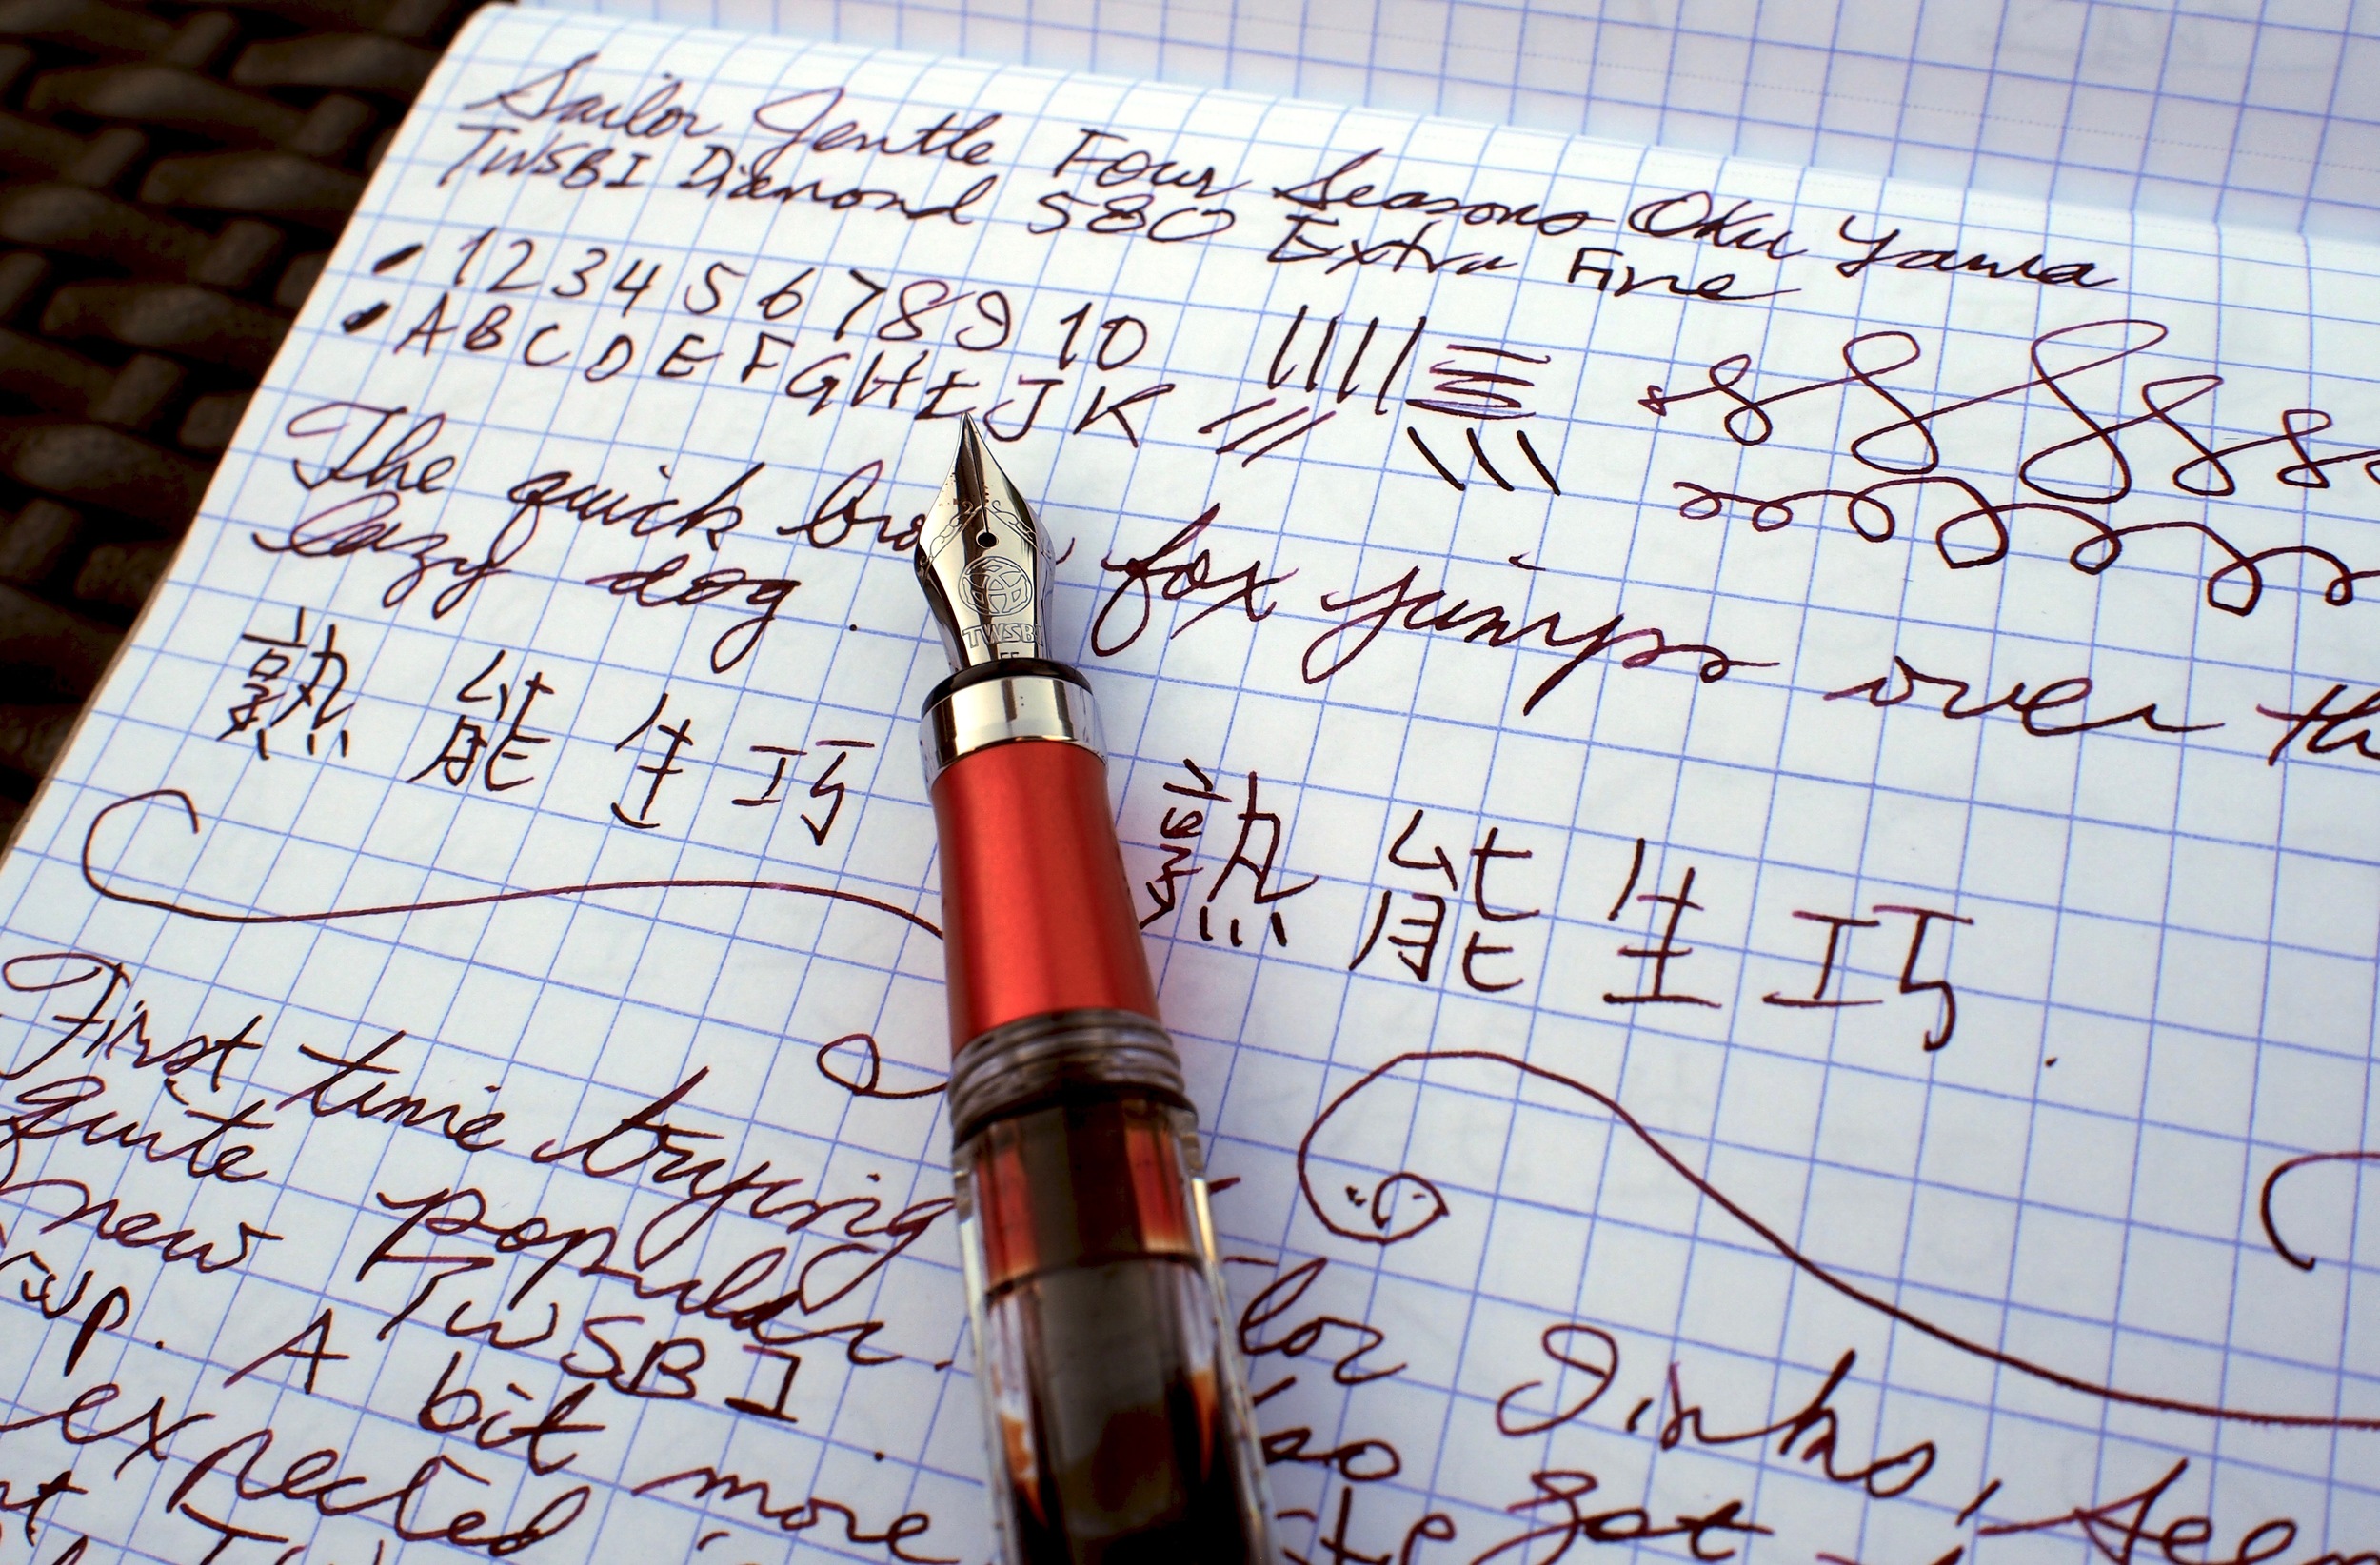 Sailor Jentle Four Seasons Oku Yama
TWSBI Diamond 580 Extra Fine
1 2 3 4 5 6 7 8 9 10
A B C D E F G H I J K
The quick fox jumps over
lazy dog.
熟能生巧 熟能生巧.
First time buying Inks,
quite popular. got
new TWSBI
A bit more
expected
TWSB